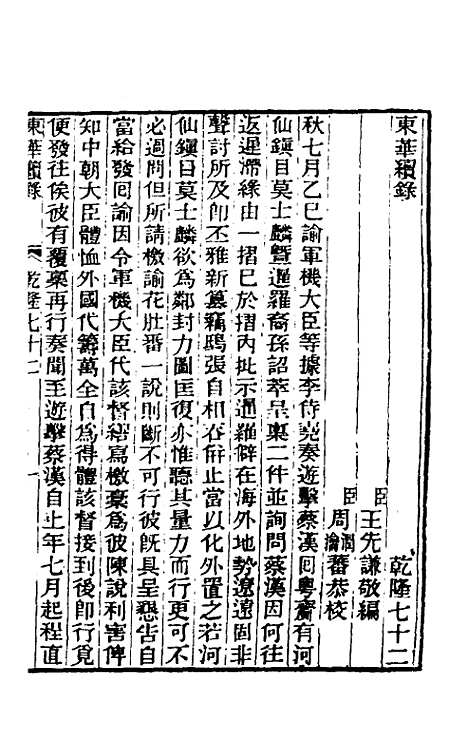 東華續錄
乾隆七十二
臣王先謙敬編
臣周潤蕃 瀹蕃恭校
秋七月乙巳諭軍機大臣等據李侍堯奏遊擊蔡漢回粵齎有河
仙鎭目莫士麟暨暹羅裔孫詔萃呈稟二件並詢問蔡漢因何往
返遲滯緣由一摺已於摺內批示暹羅僻在海外地勢遼遠固非
聲討所及卽丕雅新篡竊鴟張自相吞倂止當以化外置之若河
仙鎭目莫士麟欲爲鄰封力圖匡復亦惟聽其量力而行更可不
必過問但所請檄諭花肚番一說則斷不可行彼旣具呈懇告自
當給發回諭因令軍機大臣代該督繕寫檄稾爲彼陳說利害俾
知中朝大臣體恤外國代籌萬全自爲得體該督接到後卽行覓
便發往俟彼有覆稟再行奏聞至遊擊蔡漢自上年七月起程直
東華續錄 乾隆七十二 一